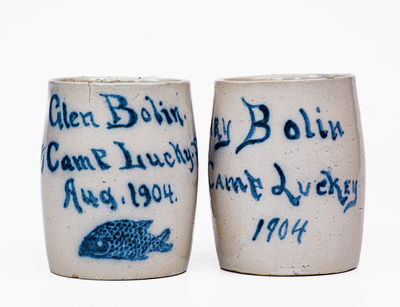 Glen Bolin.
Camp Lucky
Aug. 1904.
Bolin
Camp Luckey
1904